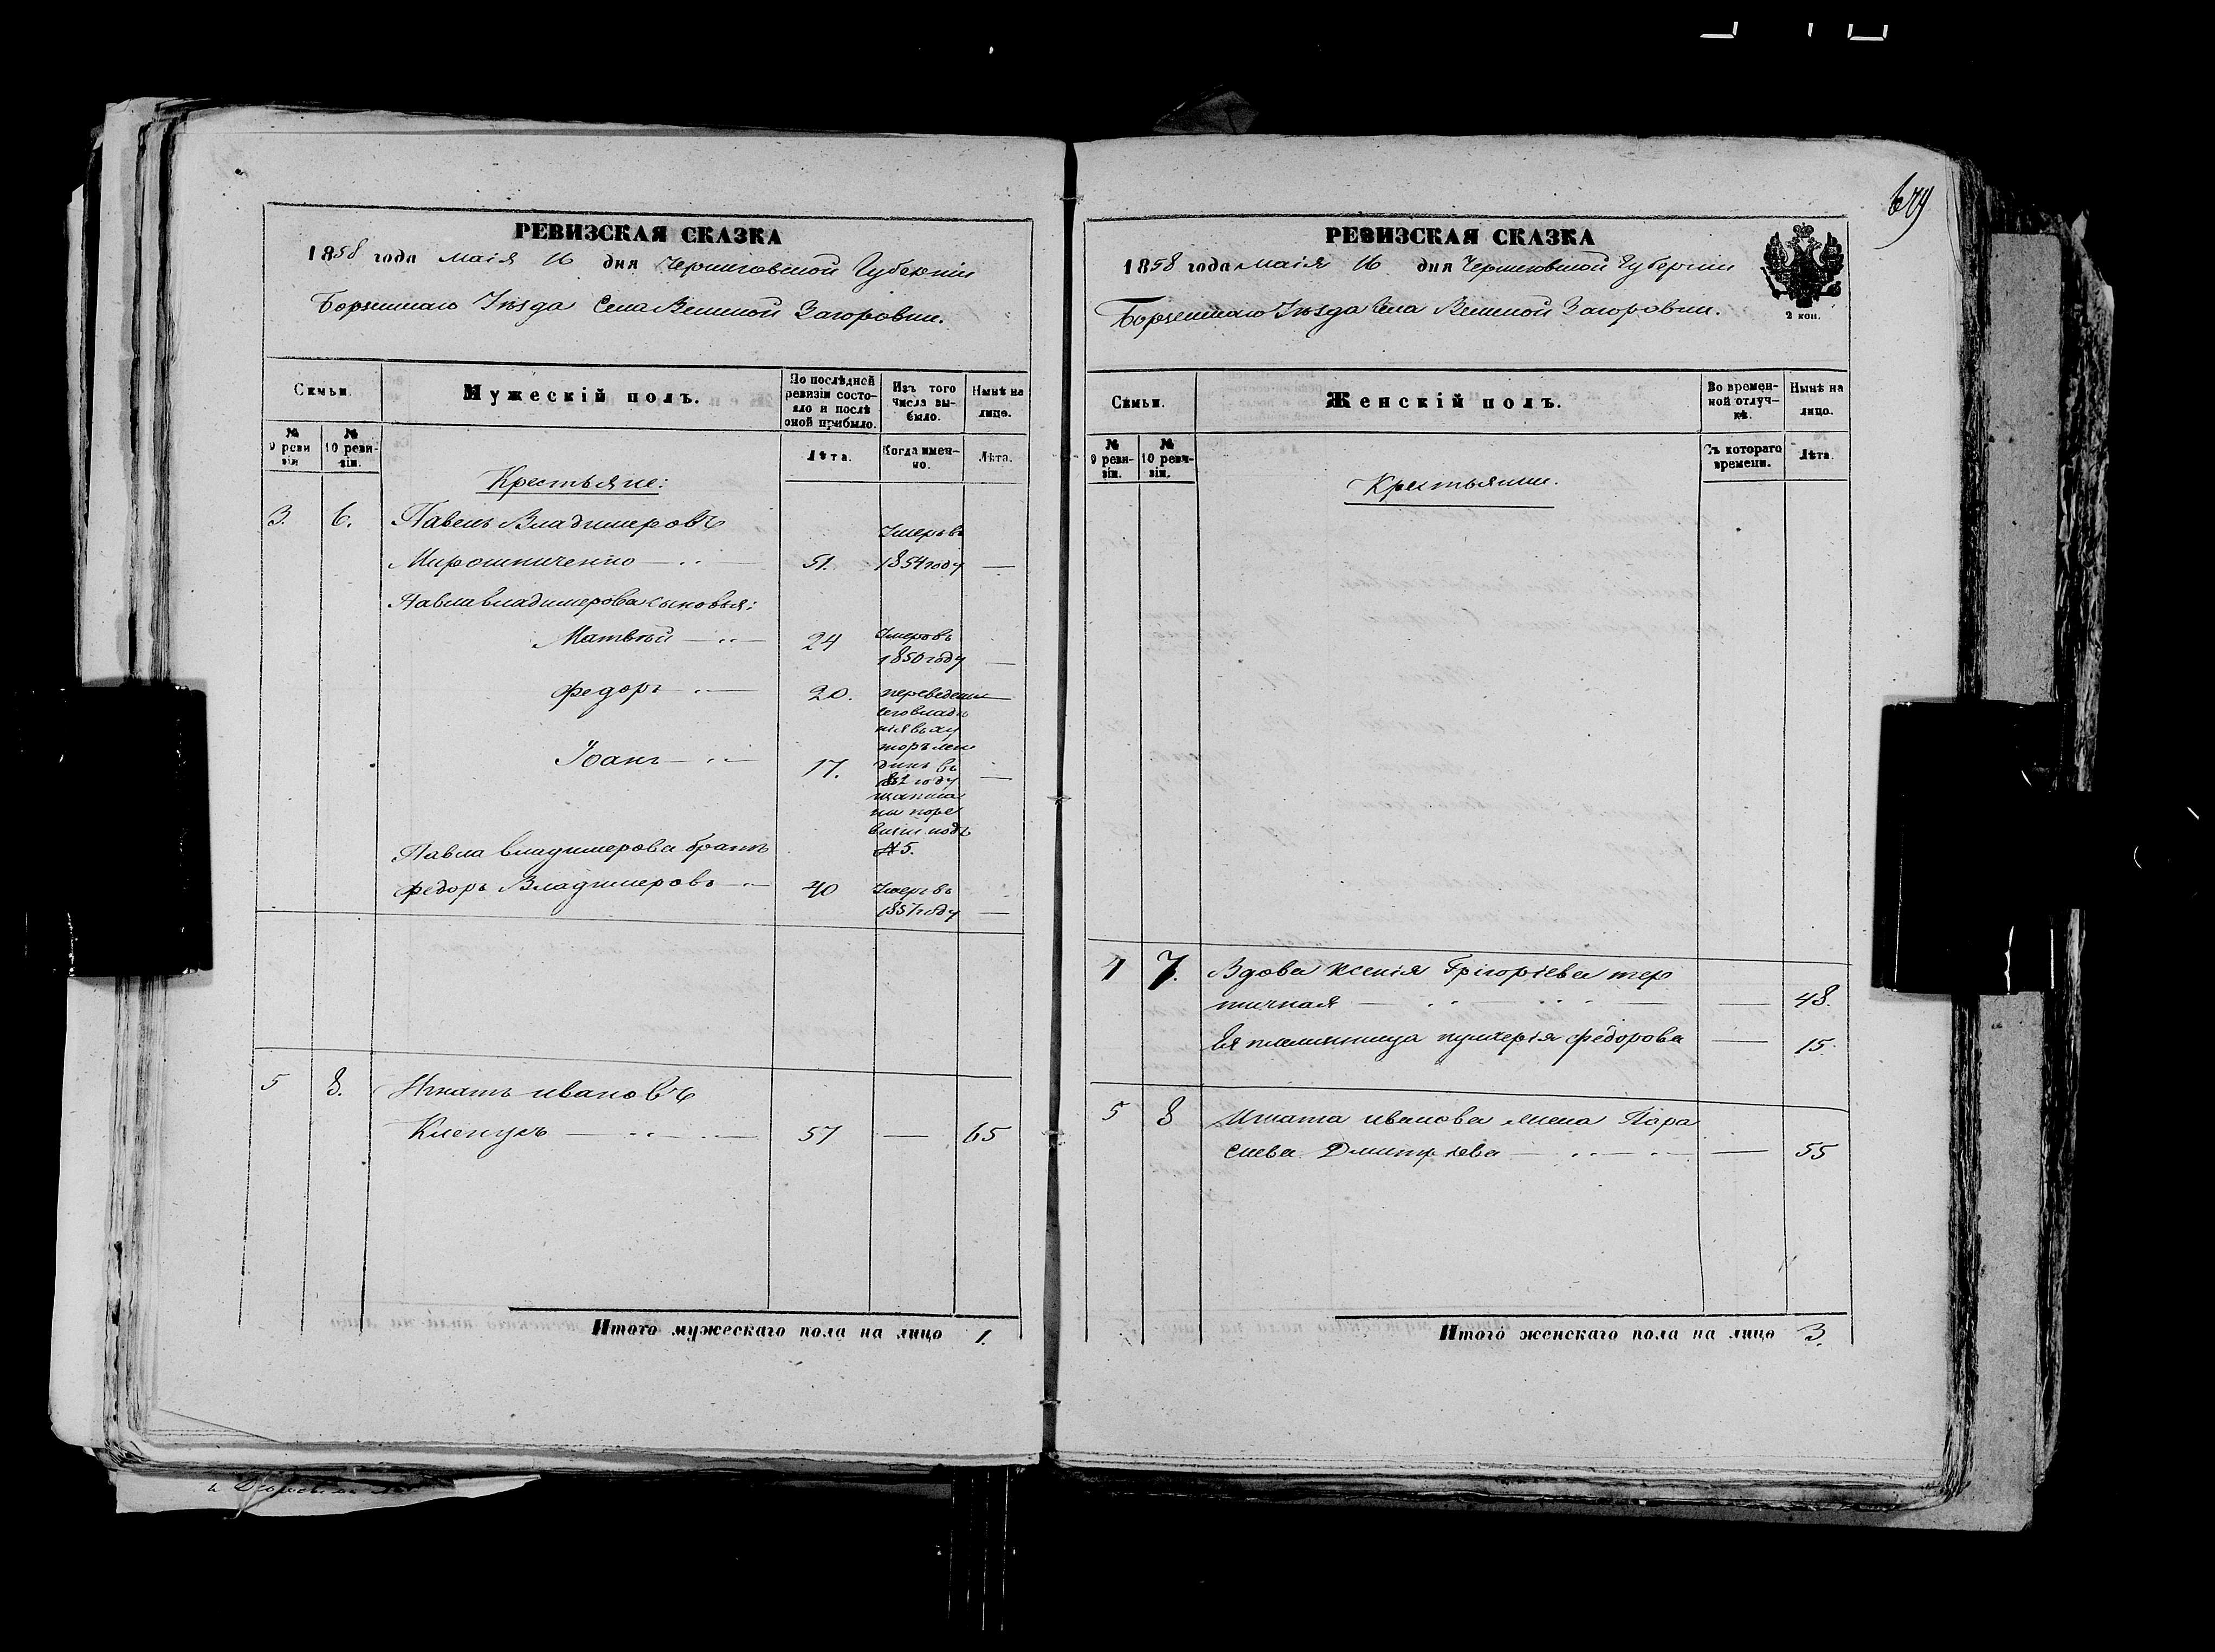 РЕВИЗСКАЯ СКАЗКА
1858 года маія 16 дня Черниговской Губерніи
Борзенскаго Уѣзда Села Великой Загоровки.
Семьи.
Мужескій полъ.
По послѣдней ревизіи состояло и послѣ оной прибыло.
Изъ того числа выбыло.
Нынѣ на лицо.
№ 9 ревизіи
№ 10 ревизіи.
Лѣта.
Когда именно.
Лѣта.
Крестьяне:
3. 6. Павелъ Владимеровъ
Умеръ въ
Мирошниченко 51. 1854 году —
Павла владимерова сыновья:
Матвѣй 24 Умеръ въ
1850 году —
Федоръ 20. переведены
сего владѣ
нія въ ху
торъ
Іоанъ 17. въ —
1852 году
по ре
визіи подъ
Павла владимерова братъ № 5.
Федоръ Владимеровъ 40 Умеръ въ
1857 году —
5 8. Игнатъ ивановъ
57 — 65
Итого мужескаго пола на лицо 1.
679
РЕВИЗСКАЯ СКАЗКА
1858 года маія 16 дня Черниговской Губерніи
Борзенскаго Уѣзда Села Великой Загоровки.
2 коп.
Семьи.
Женскій полъ.
Во временной отлучкѣ.
Нынѣ на лицо.
№ 9 ревизіи.
№ 10 ревизіи.
Съ котораго времени.
Лѣта.
Крестьянки.
4 7. Вдова Ксенія Грігоріева тер
тичная — 48.
Ея племянница пулхерія Федорова — 15.
5 8 Игната иванова жена Пара
скева Дмитріева — 55
Итого женскаго пола на лицо 3.